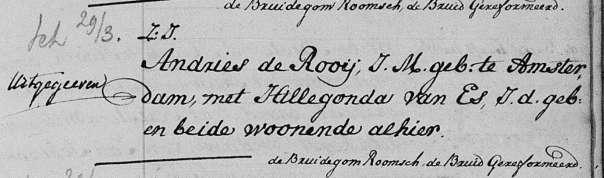 de Bruidegom Roomsch, de Bruid Gereformeerd.
29/3. Z. J.
Andries de Rooij, J. M. geb: te Amster,
Uitgegeeven
dam, met Hillegonda van Es, J. d. geb:
en beide woonende alhier.
de Bruidegom Roomsch, de Bruid Gereformeerd.